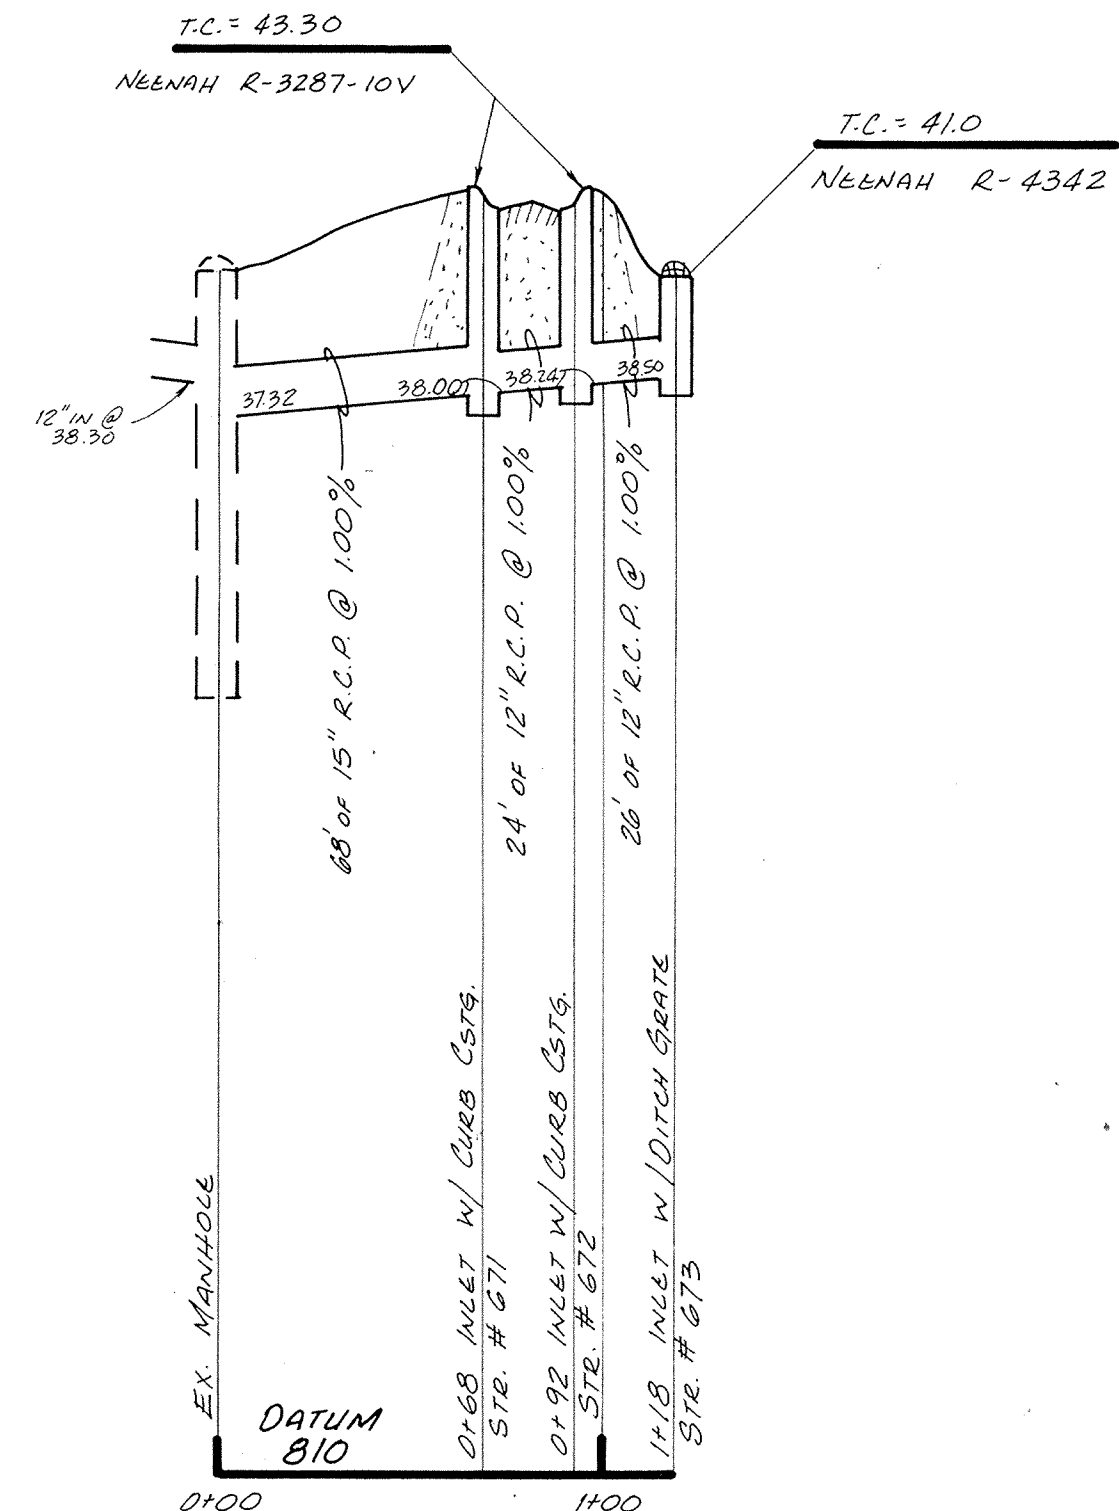 T.C. = 43.30
NEENAH R-3287-10V
T.C. = 41.0
NEENAH R-4342
12" IN @
38.30
37.32
38.00
38.24
38.50
68' OF 15" R.C.P. @ 1.00%
24' OF 12" R.C.P. @ 1.00%
26' OF 12" R.C.P. @ 1.00%
EX. MANHOLE
0+68 INLET W/ CURB CSTG.
STR. # 671
0+92 INLET W/ CURB CSTG.
STR. # 672
1+18 INLET W/ DITCH GRATE
STR. # 673
DATUM
810
0+00
1+00